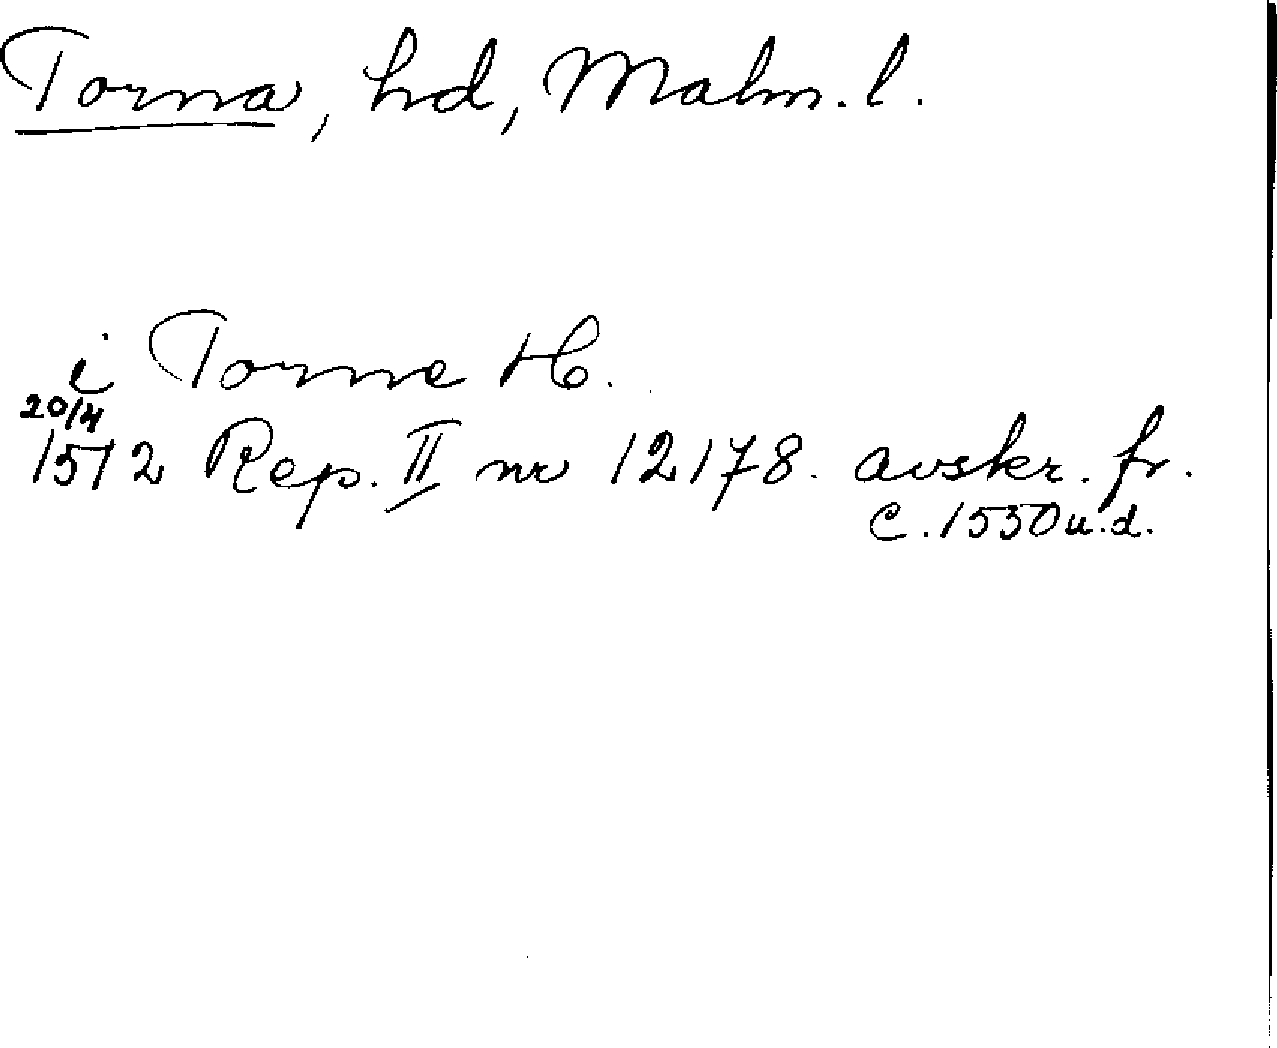 Torna, hd, Malm. l.
i Torne H.
20/4
1512 Rep. II nr 12178. avskr. fr.
c. 1550 u.d.